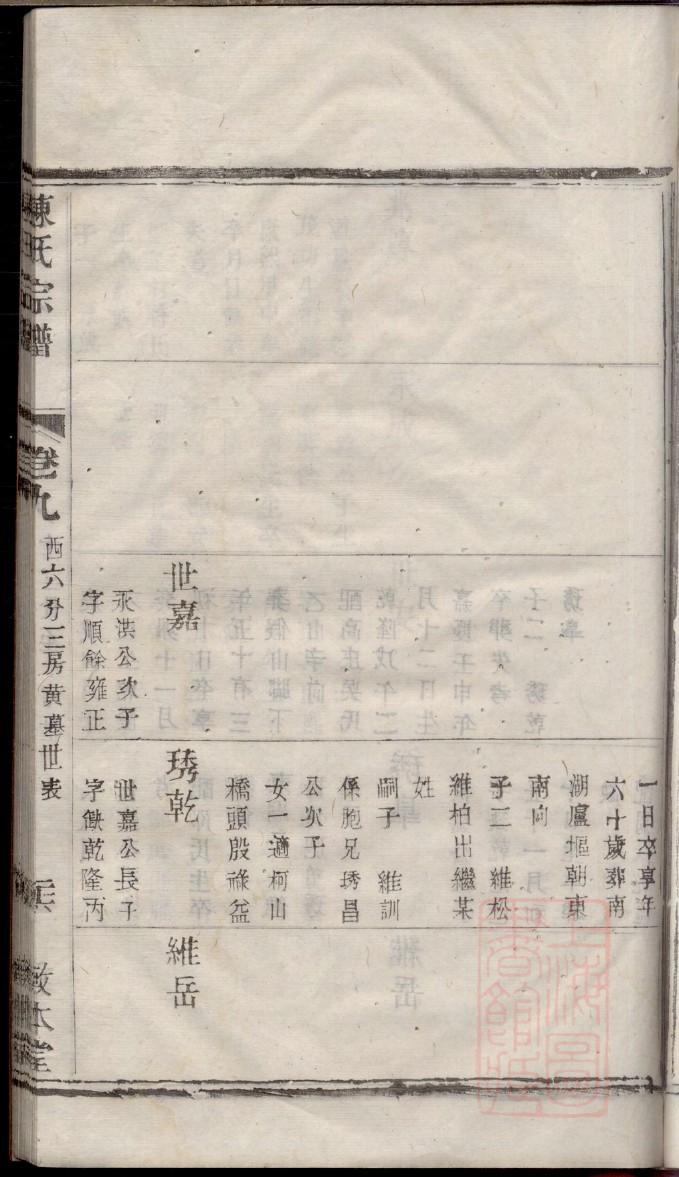 一日卒享年
六十歲葬南
湖廬堰朝東
南向
子二　維松
維柏出繼某
姓
嗣子　維訓
係胞兄琇昌
公次子
女一適柯山
橋頭殷祿益
世嘉
承洪公次子
字順餘雍正
琇乾
世嘉公長子
字欽乾隆丙
維岳
陳氏宗譜
卷九
西六分三房黃墓世表
敦本堂